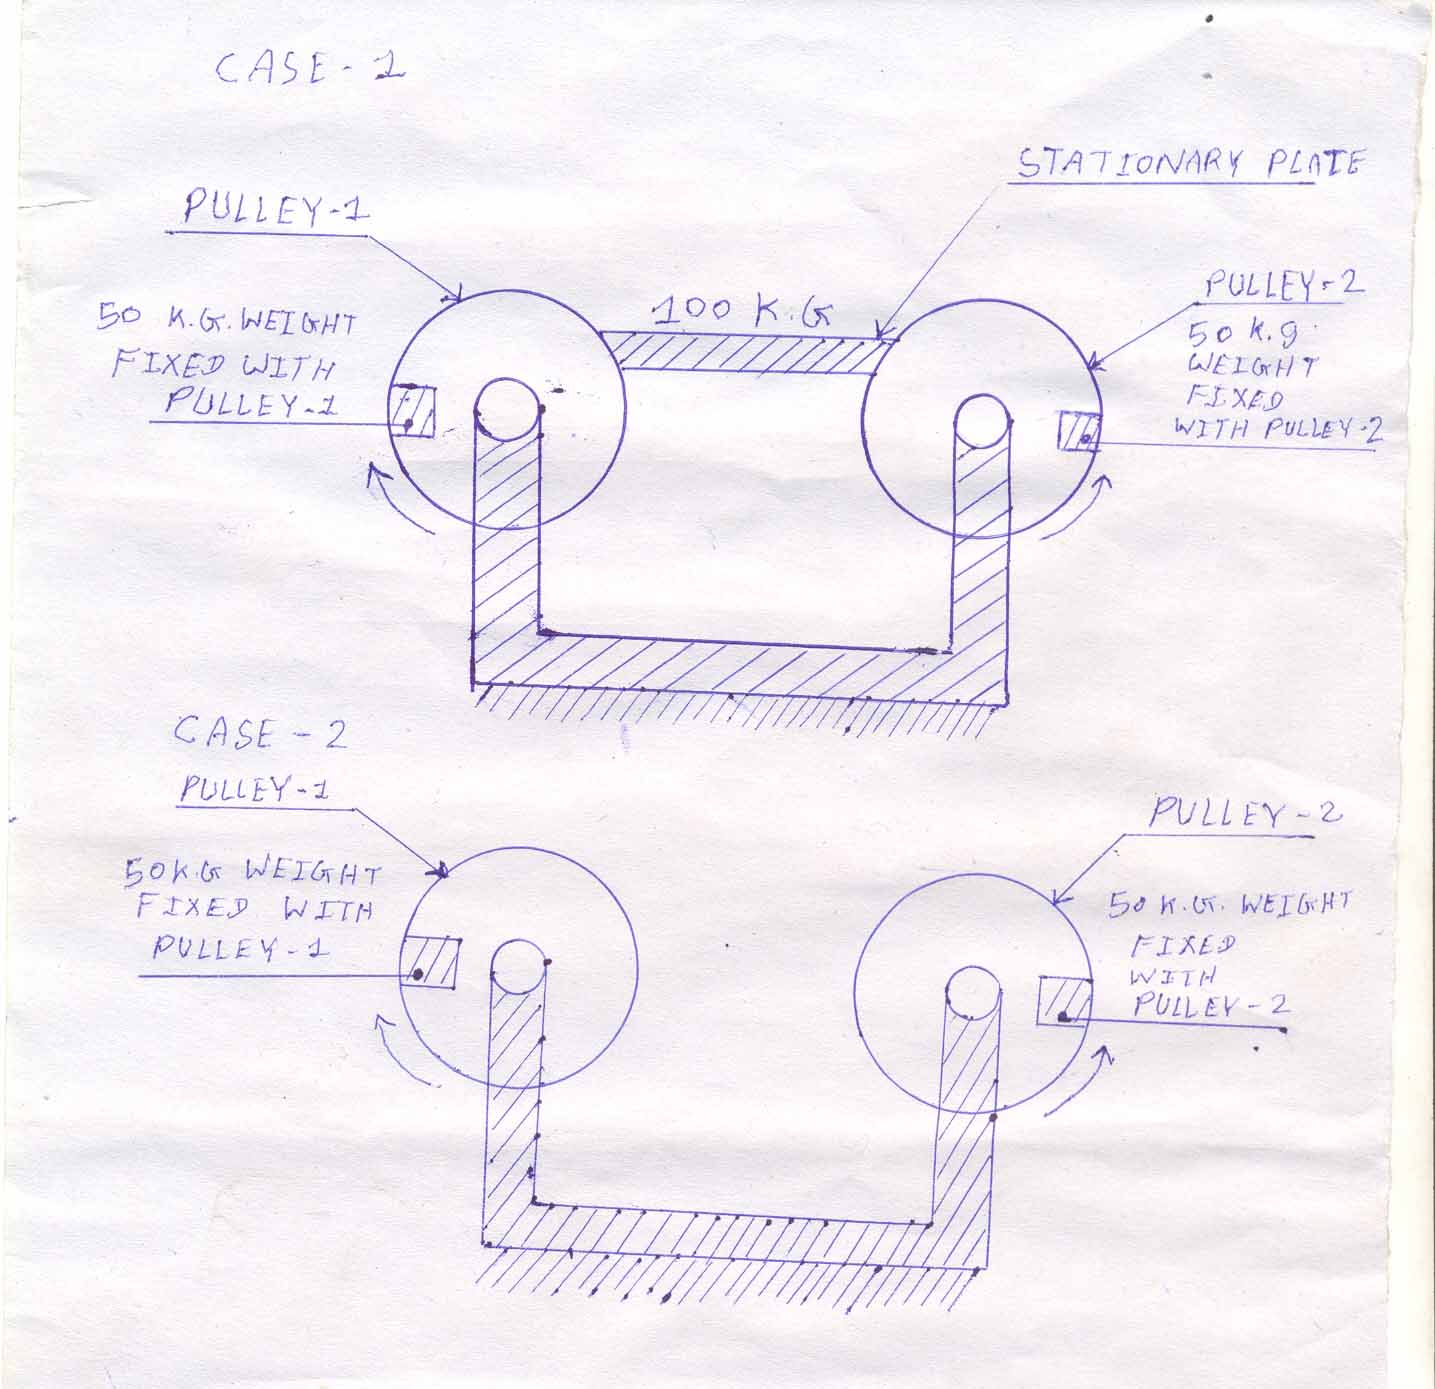 CASE-1
STATIONARY PLATE
PULLEY-1
50 K.G. WEIGHT
FIXED WITH
PULLEY-1
100 K.G
PULLEY-2
50 K.g.
WEIGHT
FIXED
WITH PULLEY-2
CASE-2
PULLEY-1
50K.G WEIGHT
FIXED WITH
PULLEY-1
PULLEY-2
50 K.G. WEIGHT
FIXED
WITH
PULLEY-2